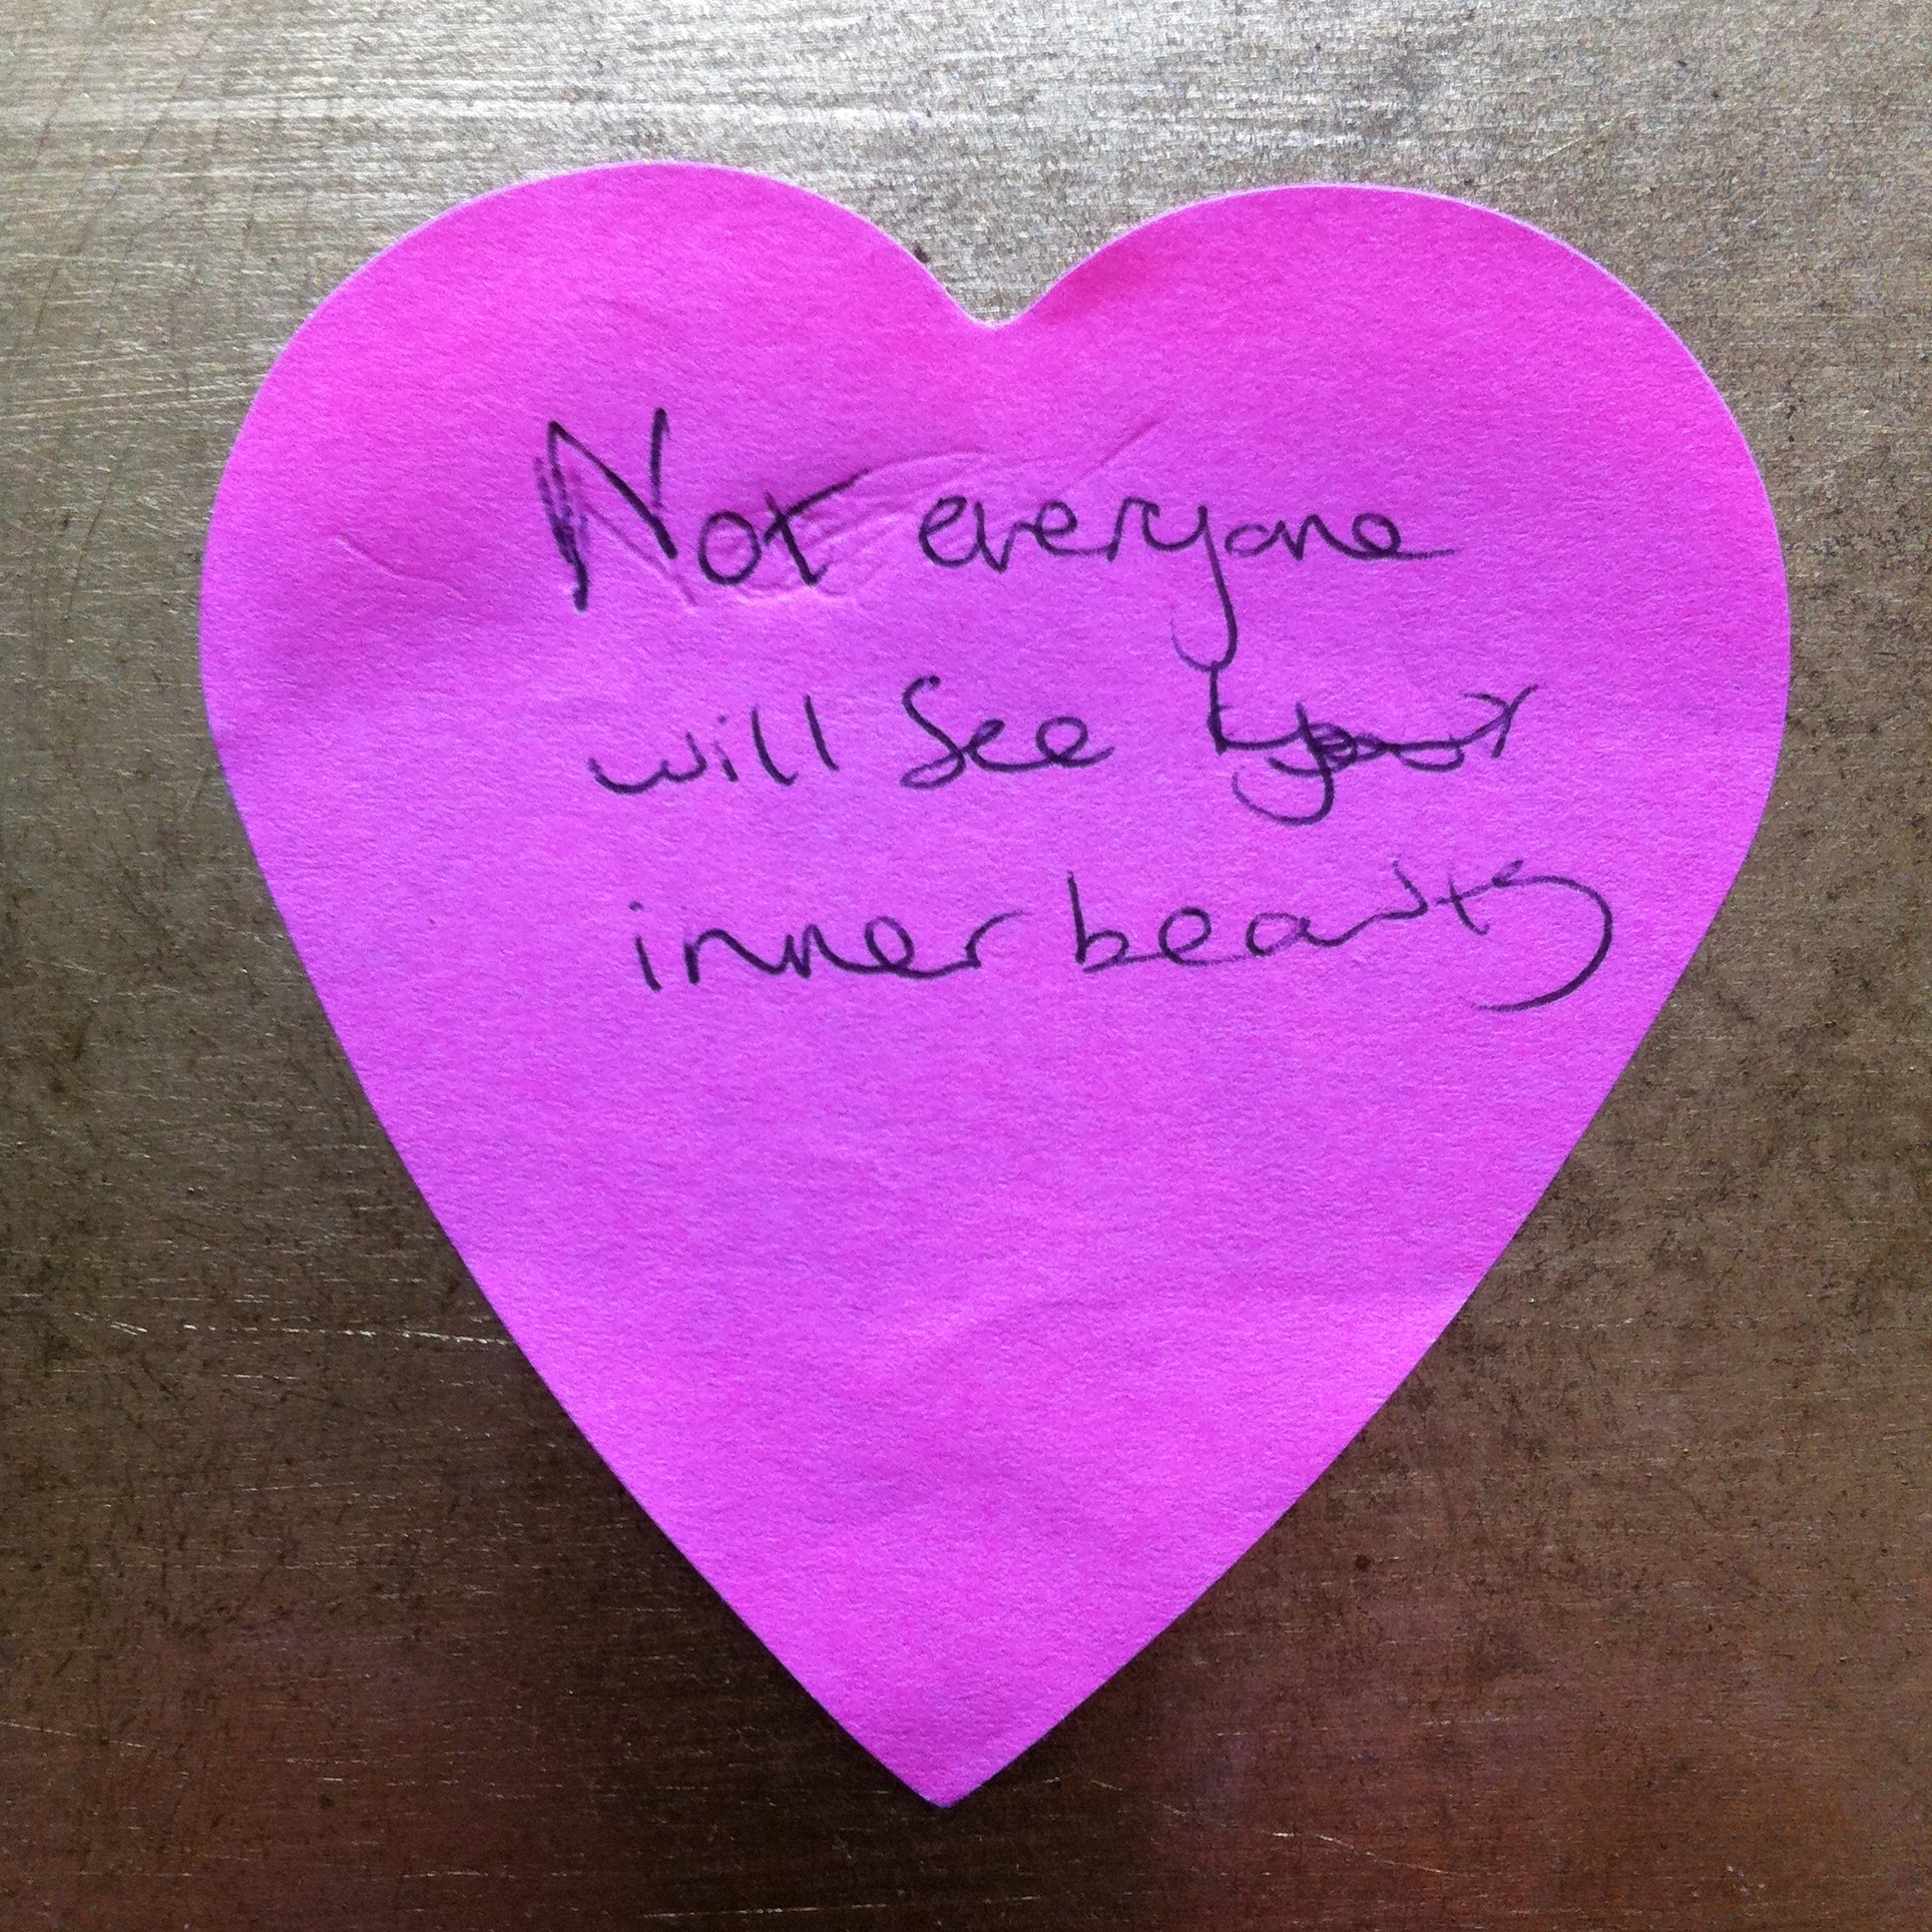 Not everyone
will see your
inner beauty